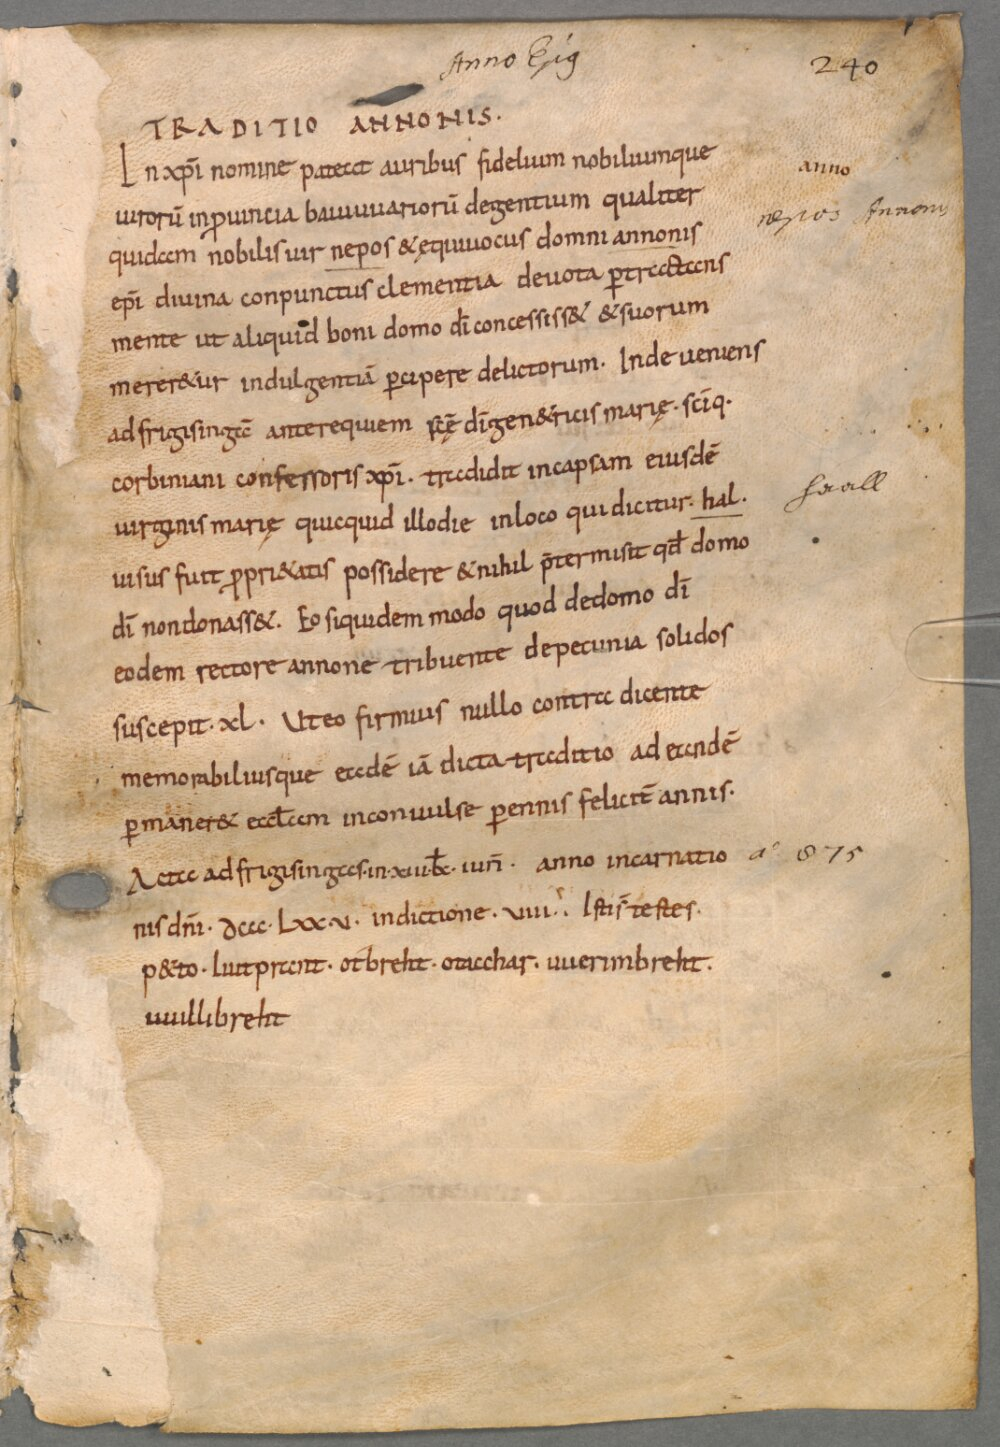 240
TRADITIO ANNONIS.
In xp̄i nomine pateat auribus fidelium nobiliumque
anno
uirorū inprouincia baiuuuariorū degentium qualiter
nepos Annonis
quidam nobilis uir nepos & ęquiuocus domni annonis
ep̄i diuina conpunctus clementia deuota ꝑtractans
mente ut aliquid boni domo dī concessiss& & suorum
merer&ur indulgentiā ꝑcipere delictorum. Inde ueniens
ad frigisingā ante requiem scē dī gen&ricis marię. scīq.
corbiniani confessoris xp̄i. tradidit incapsam eiusdē
uirginis marię quicquid illo die inloco qui dicitur. hal.
haall
uisus fuit propri&atis possidere & nihil p̄termisit qd̄ domo
dī non donass&. Eo siquidem modo quod de domo dī
eodem rectore annone tribuente de pecunia solidos
suscepit. xl. Ut eo firmius nullo contra dicente
memorabiliusque eadē iā dicta traditio ad eandē
ꝑman&& eccl̄am inconuulse perennis feliciē annis.
Acta ad frigisingas. in. xiiii. kł. iuñ. anno incarnatio
aº 875
nis dñi. dccc. Lxx. v. indictione. viii. Isti s̄ testes.
p&to. Liutprant. otbreht. otachar. uuerimbreht.
uuillibreht